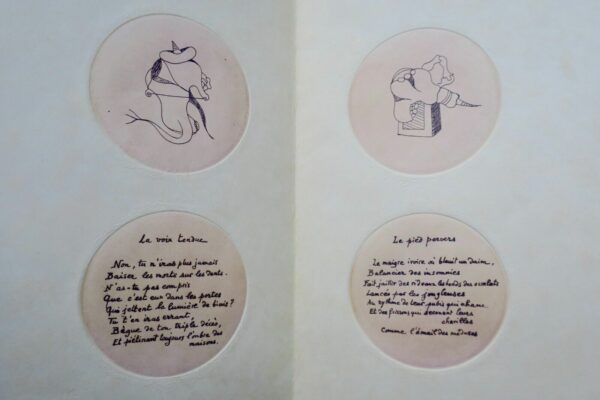 La voix tendue
Non, tu n'iras plus jamais
Baiser les morts sur les dents.
N'as-tu pas compris
Que c'est eux dans les portes
Qui jettent la lumière de biais ?
Tu t'en iras errant,
Bègue de ton triple décès,
Et piétinant toujours l'ombre des
maisons.
Le pied pervers
Le maigre ivoire où bleuit un daim,
Balancier des insomnies
Fait jaillir des rideaux les bords des
Lancés par les jongleuses
Au rythme de leur pubis qui
Et des frissons qui
leurs
chevilles
Comme l'émail des méduses